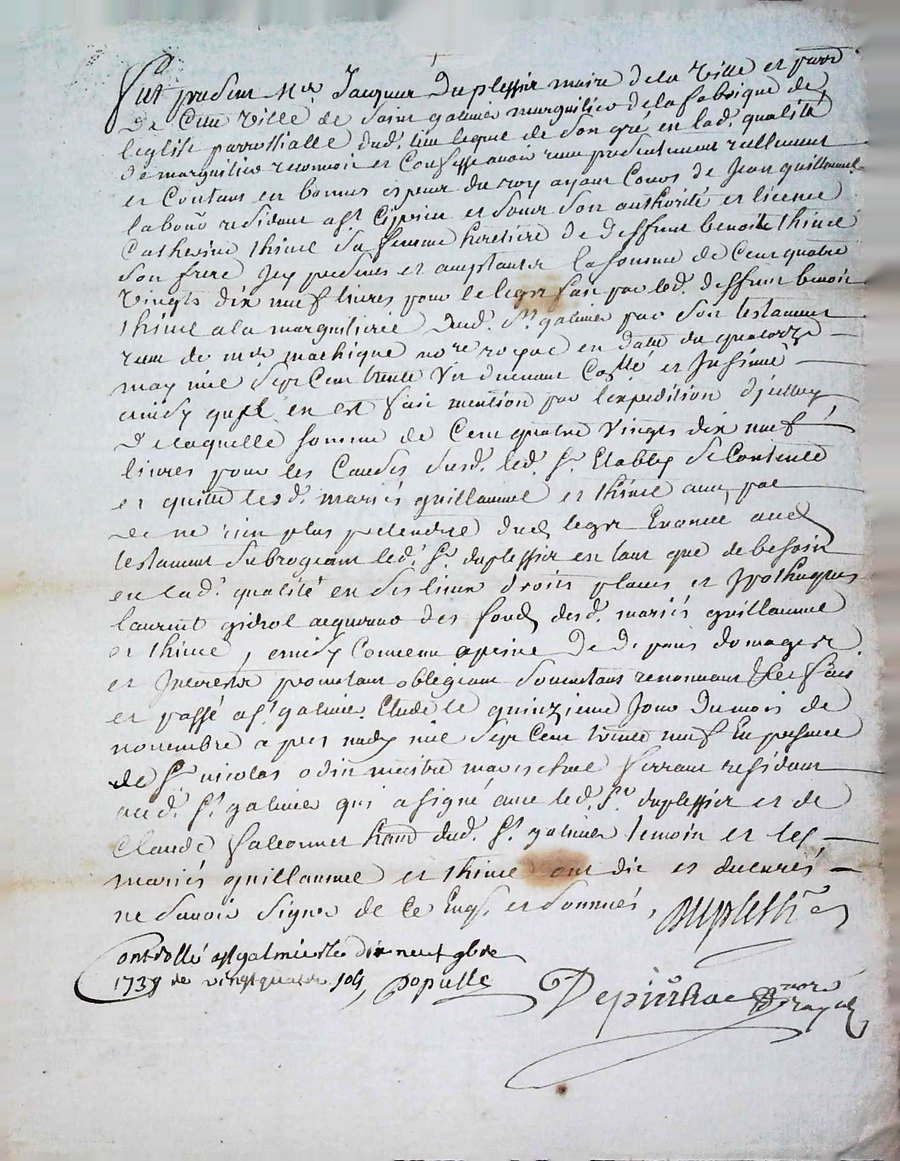 fut presens Mre Jacques Duplessis maire de la Ville et
De Cette Ville de Saint galmier marguilier de la fabrique de
leglise parrossialle dud. lieu lequel de Son gré en lad. qualité
de marguilier reconnoit et Confesse avoir receu presentement reellement
et Contans en bonnes espeses du roy ayant Cours de Jean guillaume
labour residant a St Ciprien et Sous Son authorité et licence
Catherine thime Sa femme heretiere de deffunt benoit thime
Son frere Icy presents et aceptants la Somme de Cent quatre
Vingts dix neuf livres pour le legs fait par led. deffunt benoit
thime a la marguilierie dud. St. galmier par Son testament
receu de me machique nore royal en datte du quatorze
may mil Sept Cent trente Un duement et Insinué
ainsy quil en est fait mention par lexpedition dyceluy
de laquelle Somme de Cent quatre Vingts dix neuf
livres pour les Causes susd. led. Sr. Etably Se Contente
et quitte lesd. mariés guillaume et thime avec pac
de ne rien plus pretendre dud legs Enoncé aud
testament Subrogeant led. Sr. duplessis en tant que de besoin
en lad. qualité en Ses lieux droits places et ypotheques
laurent gidrol acquereur des fonds desd. mariés guillaume
et thime, ainsy Convenu a peine de depans domages
et Interests pourtant obligeant Soumettans renonceant &c fait
et passé a St. galmier Etude le quinzieme Jour du mois de
novembre apres midy mil Sept Cent trente neuf En presence
de Sr. nicolas odin maitre marechal ferrant residant
aud. St. galmier qui a signé avec led. Sr. duplessis et de
Claude falconnet dud. St. galmier temoin et les
mariés guillaume et thime ont dit et declarés
ne Savoir Signer de ce Enqs. et Sommés, Duplessis
Controllé a St galmier le dix neuf 9bre
1739 re vingt quatre sols, Popule
nore royal